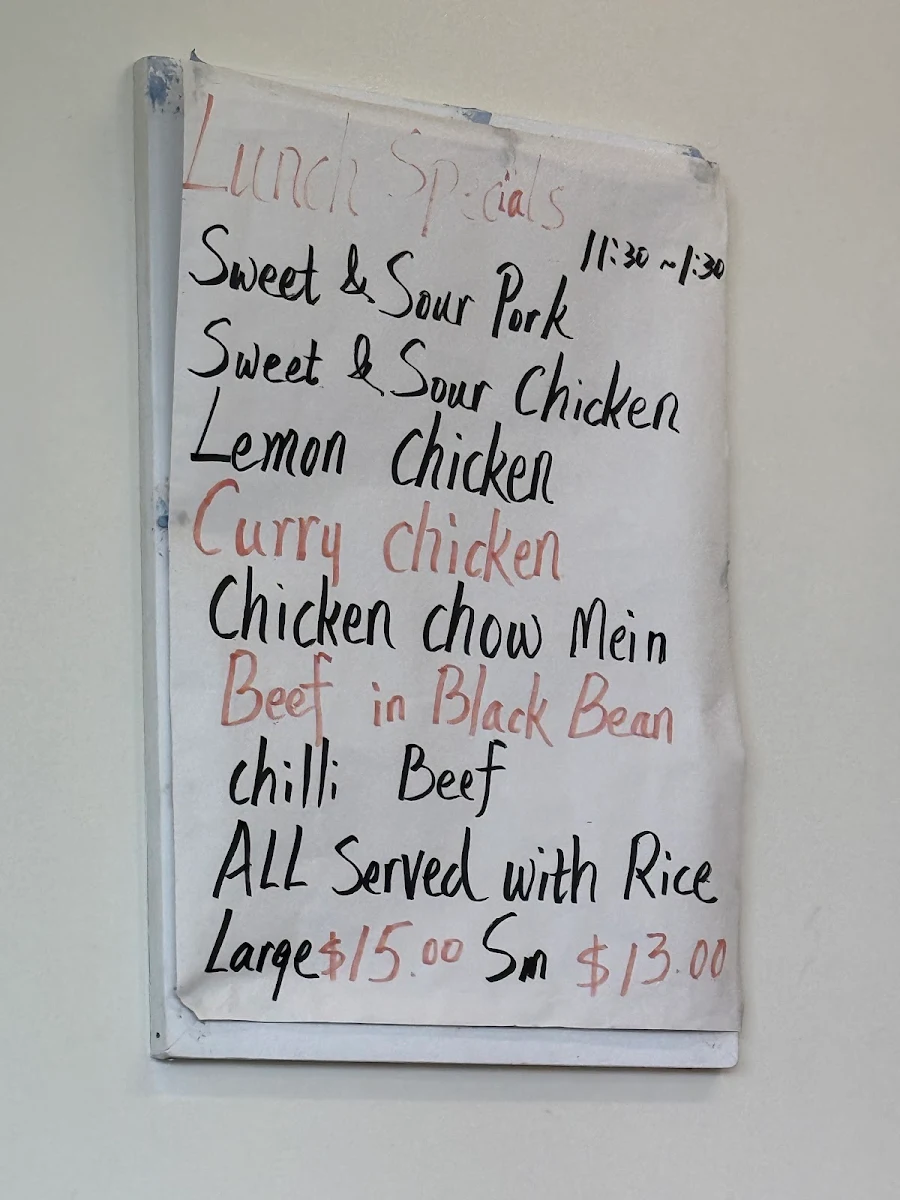 Lunch Specials
11:30 ~ 1:30
Sweet & Sour Pork
Sweet & Sour Chicken
Lemon Chicken
Curry chicken
Chicken chow Mein
Beef in Black Bean
chilli Beef
ALL Served with Rice
Large $15.00 Sm $13.00